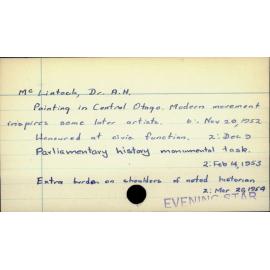 Mc Lintock, Dr. A.H.
Painting in Central Otago. Modern movement
inspires some later artists. 6: Nov 20, 1952
Honoured at civic function. 2: Dec. 9
Parliamentary history monumental task.
2: Feb 14, 1953
Extra burden on shoulders of noted historian
2: Mar 20, 1954
EVENING STAR